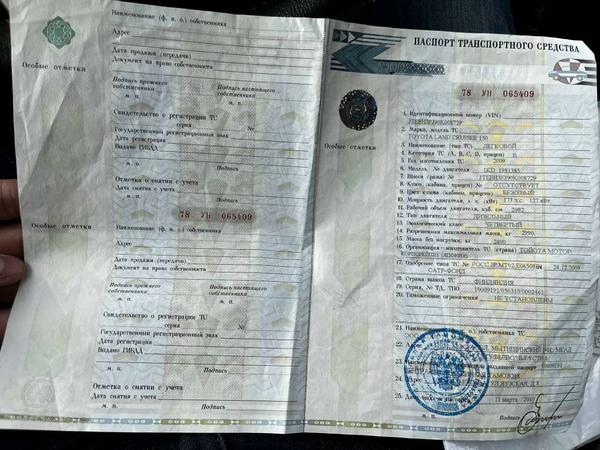 Наименование (ф. и. о.) собственника
Адрес
Особые отметки
Дата продажи (передачи)
Документ на право собственности
Подпись прежнего собственника
Подпись настоящего собственника
М. П.
М. П.
Свидетельство о регистрации ТС
серия №
Государственный регистрационный знак
Дата регистрации
Выдано ГИБДД
М. П.
Подпись
Отметка о снятии с учета
Дата снятия с учета
М. П.
Подпись
78 УН 065409
Особые отметки
Наименование (ф. и. о.) собственника
Адрес
Дата продажи (передачи)
Документ на право собственности
Подпись прежнего собственника
Подпись настоящего собственника
М. П.
М. П.
Свидетельство о регистрации ТС
серия №
Государственный регистрационный знак
Дата регистрации
Выдано ГИБДД
М. П.
Подпись
Отметка о снятии с учета
Дата снятия с учета
М. П.
Подпись
ПАСПОРТ ТРАНСПОРТНОГО СРЕДСТВА
78 УН 065409
Особые отметки
1. Идентификационный номер (VIN)
2. Марка, модель ТС
TOYOTA LAND CRUISER 150
3. Наименование (тип ТС) ЛЕГКОВОЙ
4. Категория ТС (А, В, С, D, прицеп) B
5. Год изготовления ТС 2009
6. Модель, № двигателя 1KD 1981385
7. Шасси (рама) №
8. Кузов (кабина, прицеп) № ОТСУТСТВУЕТ
9. Цвет кузова (кабины, прицепа) БЕЖЕВЫЙ
10. Мощность двигателя, л. с. (кВт) 173 л.с. 127 кВт
11. Рабочий объем двигателя, куб. см 2982
12. Тип двигателя ДИЗЕЛЬНЫЙ
13. Экологический класс ЧЕТВЕРТЫЙ
14. Разрешенная максимальная масса, кг 2990
15. Масса без нагрузки, кг
16. Организация – изготовитель ТС (страна) ТОЙОТА МОТОР
КОРПОРЕЙШН (ЯПОНИЯ)
17. Одобрение типа ТС № 24.12.2009
САТР-ФОНД
18. Страна вывоза ТС ФИНЛЯНДИЯ
19. Серия, № ТД, ТПО
20. Таможенные ограничения НЕ УСТАНОВЛЕНЫ
21. собственника ТС
ООО
22. МЫТИЩИНСКИЙ
23. выдавшей паспорт
24. Адрес
25. Дата 11 марта
М. П.
Подпись